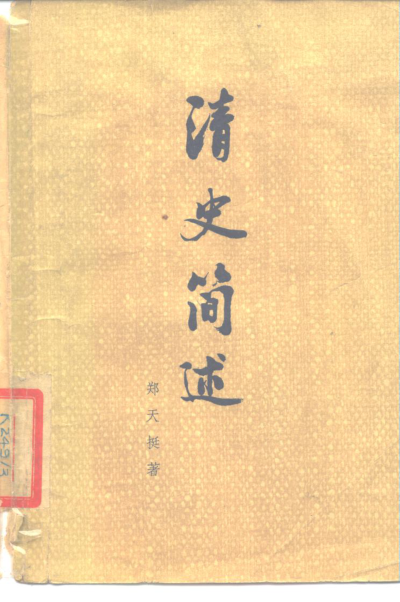 清史简述
郑天挺著
K249/3